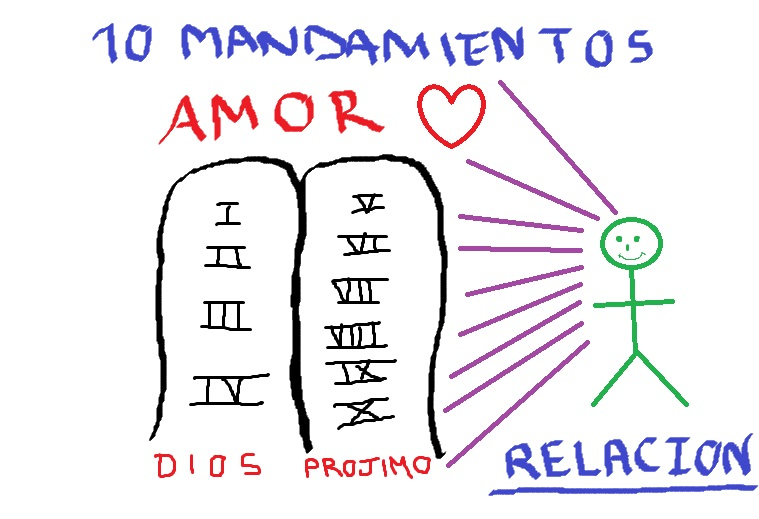 10 MANDAMIENTOS
AMOR
I
II
III
IV
V
VI
VII
VIII
IX
X
DIOS
PROJIMO
RELACION